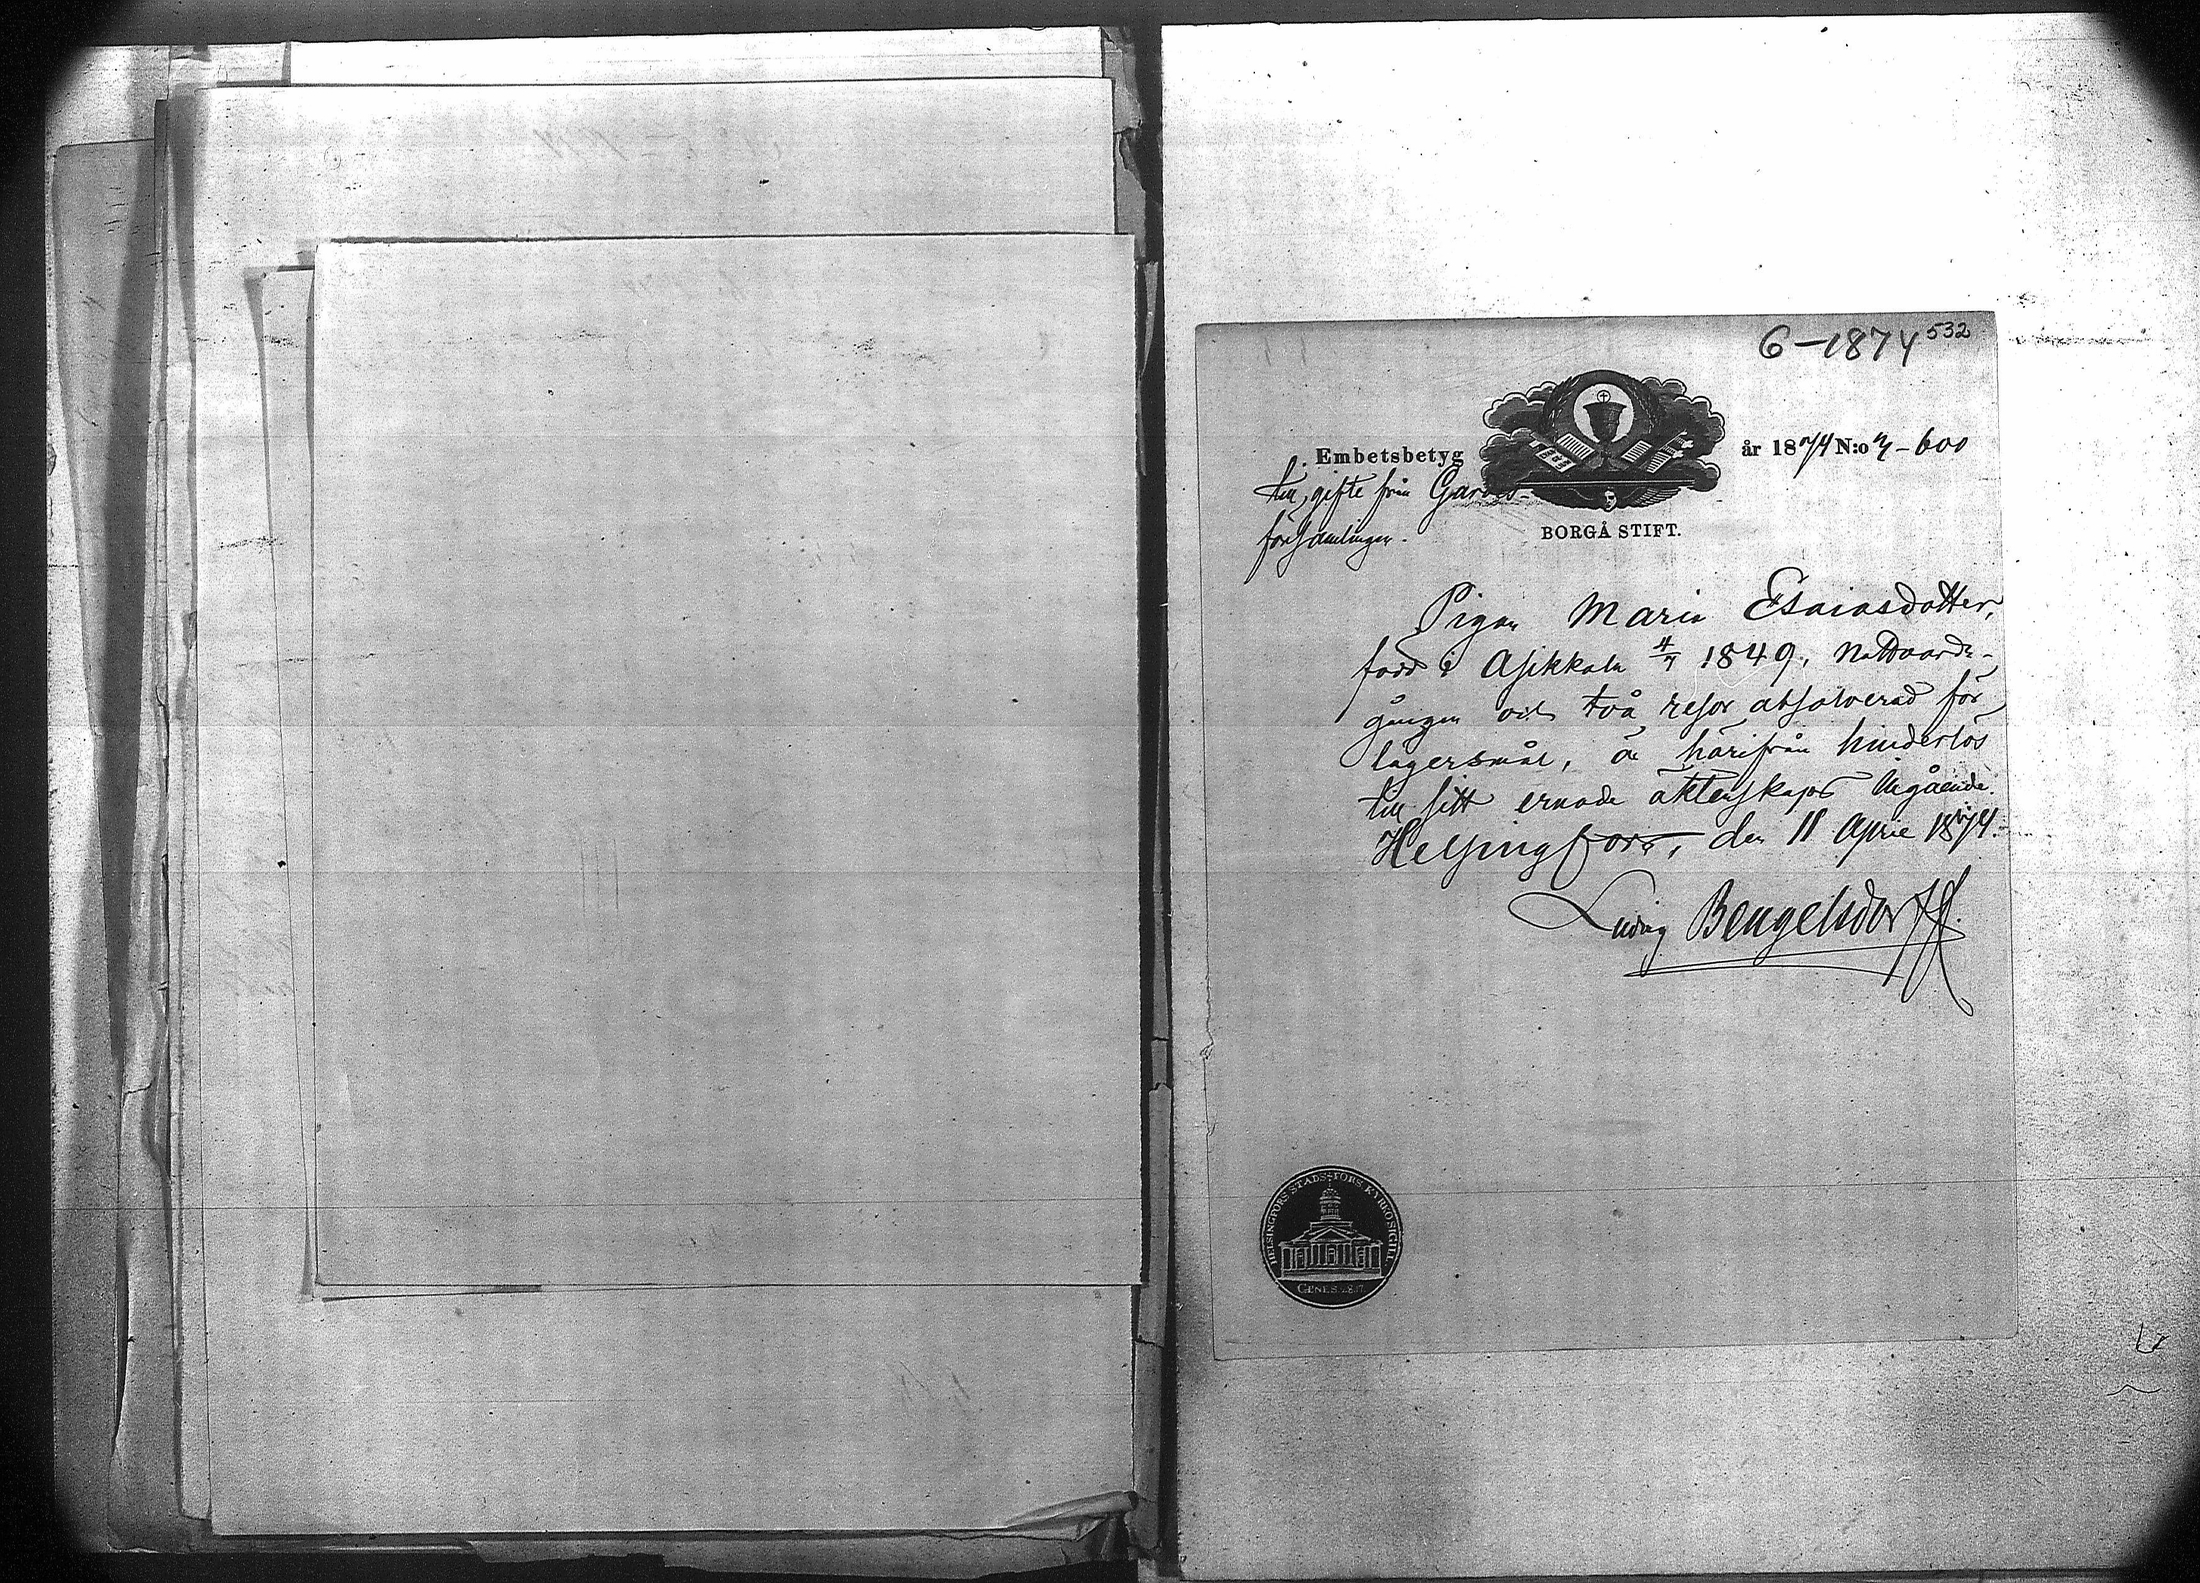 6-1874 532
Embetsbetyg år 1874 N:o
till gifte från Gardes-
församlingen.
BORGÅ STIFT.
Pigan Maria Esaiasdotter,
född i Asikkala 4/7 1849, nattvards-
gången och två resor absolverad för
lägersmål, är härifrån hinderlös
till sitt ernade äktenskaps ingående.
Helsingfors, den 11 April 1874.
Ludvig Bengelsdorff.
HELSINGFORS STADS-FÖRS. KYRKO SIGILL